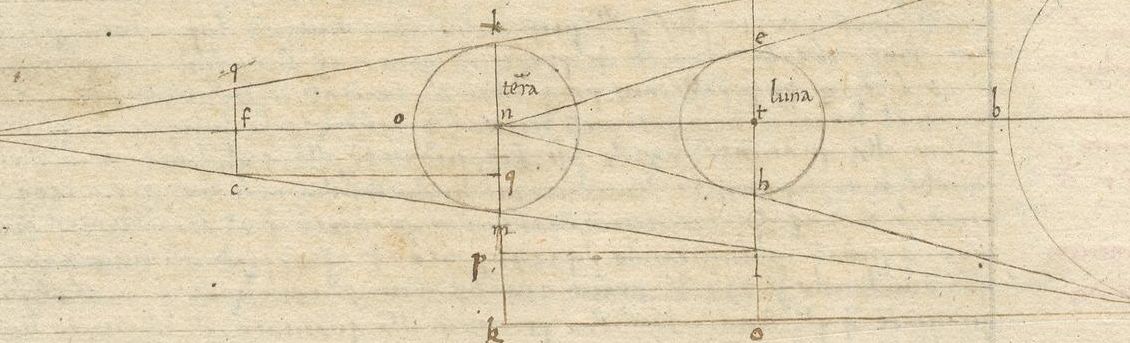 k
e
q
tera
luna
b
f
o
n
t
c
q
h
m
p
l
k
o